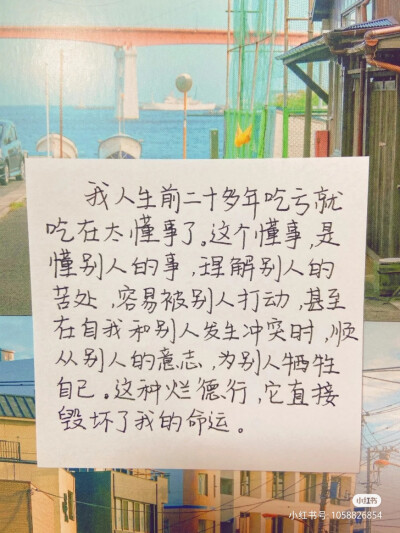 我人生前二十多年吃亏就
吃在太懂事了。这个懂事，是
懂别人的事，理解别人的
苦处，容易被别人打动，甚至
在自我和别人发生冲突时，顺
从别人的意志，为别人牺牲
自己。这种烂德行，它直接
毁坏了我的命运。
小红书
小红书号：1058826854